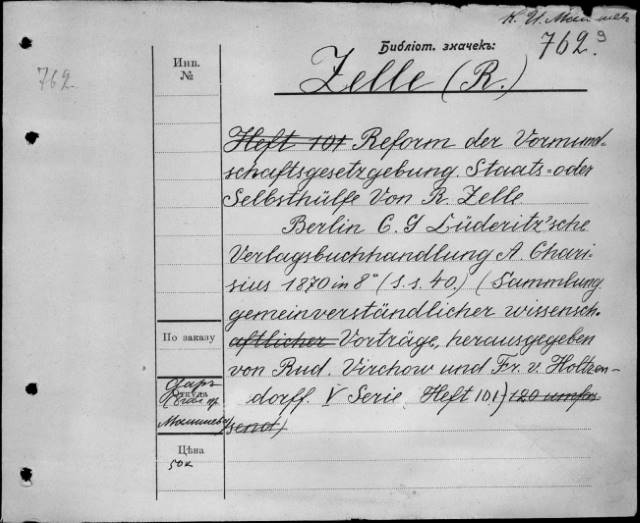 762.
Библіот. значекъ:
762.
Инв.
№
Zelle (R.)
Heft 101 Reform der Vormund-
schaftsgesetzgebung. Staats- oder
Selbsthülfe Von R. Zelle
Berlin C. G Lüderitz'sche
Verlagsbuchhandlung A. Chari-
sius 1870 in 8° (S.s. 40.) (Sammlung
gemeinverständlicher wissensch-
aftlicher Vorträge, herausgegeben
von Rud. Virchow und Fr. v. Holtzen-
dorff. V Serie, Heft 101) 120 umfas
send)
По заказу
Откуда
Цѣна
50к